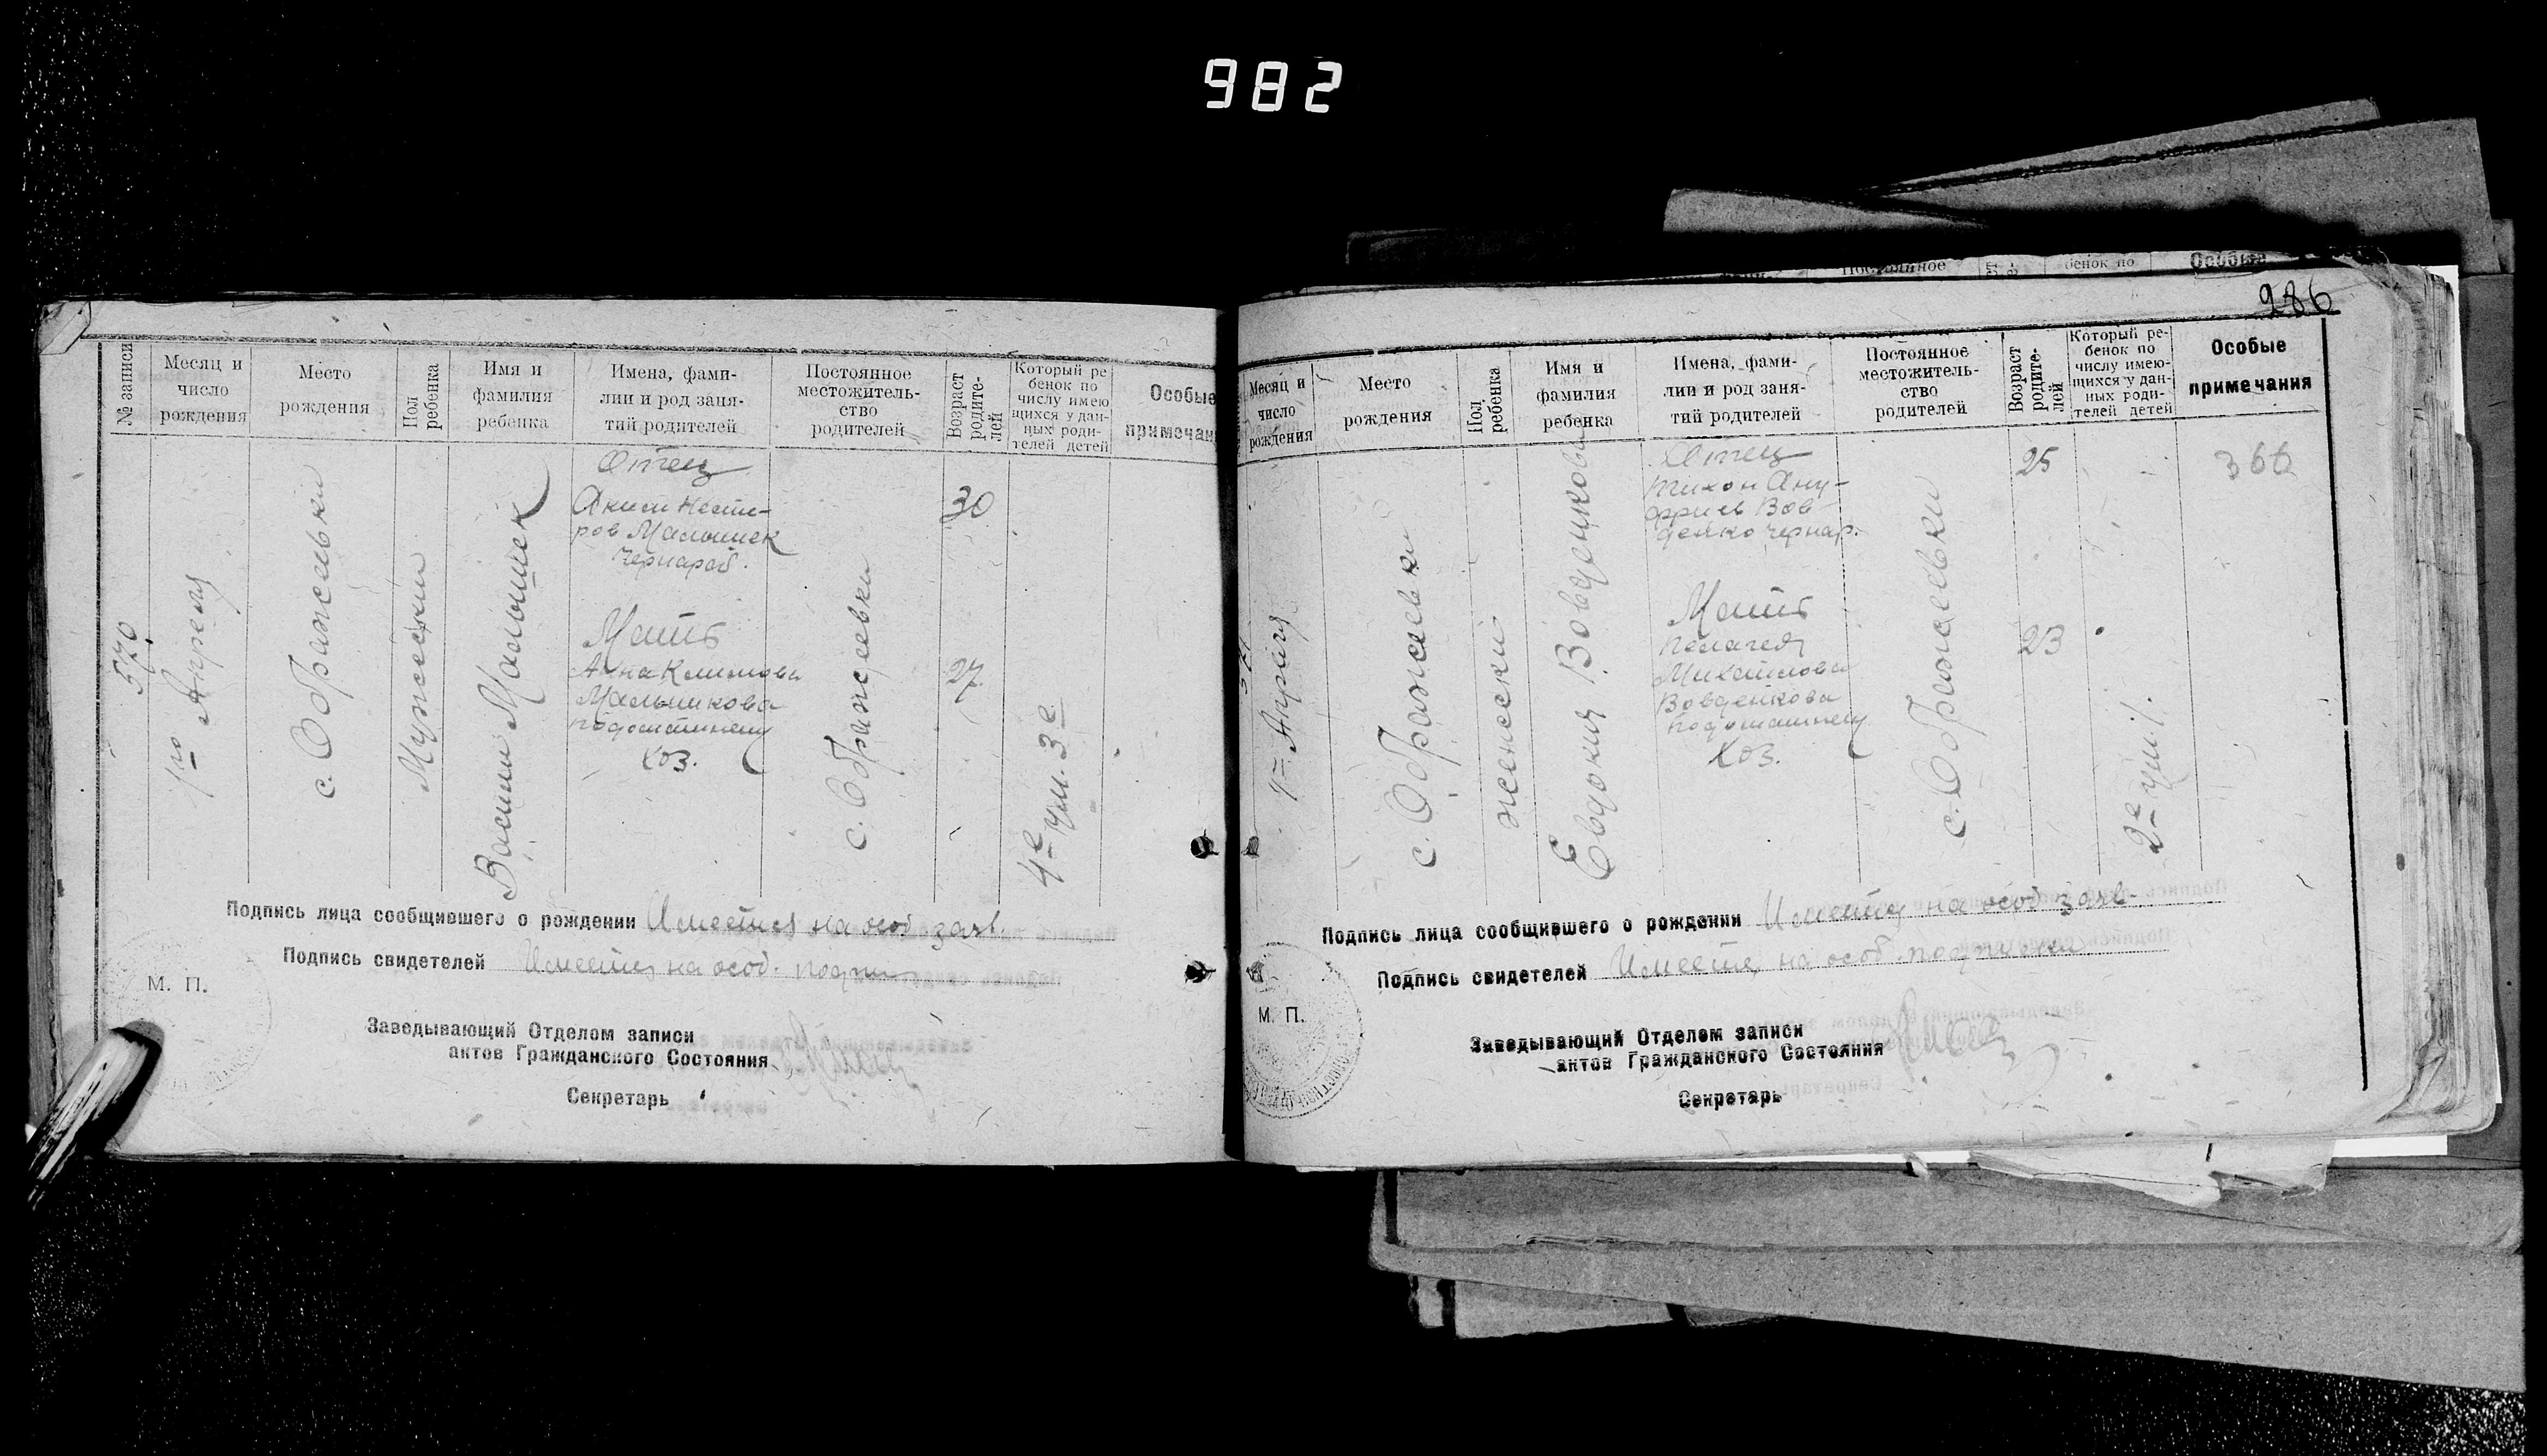 982
Постоянное
бенок по
Особые
№ записи
Месяц и
число
рождения
Место
рождения
Пол
ребенка
Имя и
фамилия
ребенка
Имена, фами-
лии и род заня-
тий родителей
Постоянное
местожитель-
ство
родителей
Возраст
родите-
лей
Который ре
бенок по
числу имею
щихся у дан-
ных роди-
телей детей
Особые
примечан
570
1го Апреля
с. Ображеевки
Мужеский
Малышек
Отец
Малышек
чернораб.
Мать
Анна Климова
Малышкова
подомашнему
хоз.
с. Ображеевки
30
27
4е ум. 3е
Подпись лица сообщившего о рождении Имеется на особ заяв.
Подпись свидетелей Имеется на особ.
М. П.
Заведывающий Отделом записи
актов Гражданского Состояния
Секретарь
286
Месяц и
число
рождения
Место
рождения
Пол
ребенка
Имя и
фамилия
ребенка
Имена, фами-
лии и род заня-
тий родителей
Постоянное
местожитель-
ство
родителей
Возраст
родите-
лей
Который ре-
бенок по
числу имею-
щихся у дан-
ных роди-
телей детей
Особые
примечания
Апреля
с. Ображеевки
женский
Евдокия Вовденкова
Отец
Тихон Ану-
фриев Вов
денко чернар.
Мать
Пелагея
Михайлова
Вовденкова
подомашнему
хоз.
с. Ображеевки
25
23
2е ум. 1.
366
Подпись лица сообщившего о рождении Имеется на особ заяв.
Подпись свидетелей Имеется на особ. подписки
М. П.
Заведывающий Отделом записи
актов Гражданского Состояния
Секретарь